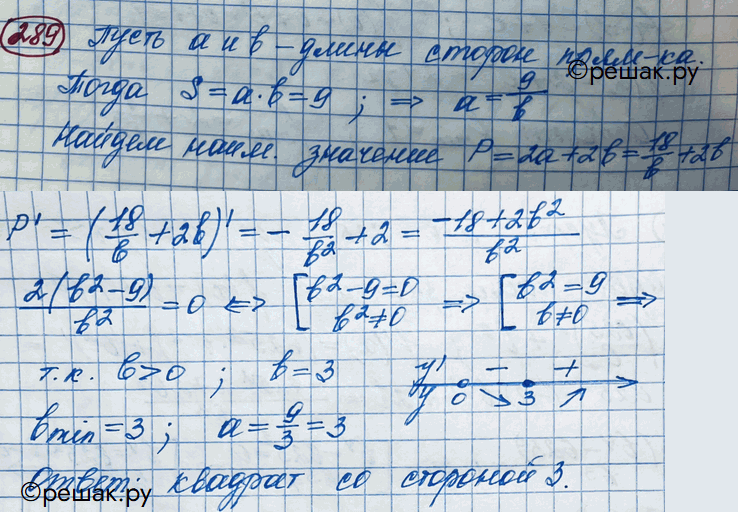 289 Пусть a и b – длины сторон прям-ка.
©решак.ру
Тогда S = a·b = 9 ; => a = 9/b
Найдем наим. значение P = 2a + 2b = 18/b + 2b
P' = (18/b + 2b)' = - 18/b² + 2 = (-18 + 2b²)/b²
2(b² - 9)/b² = 0 <=> [b² - 9 = 0 b² ≠ 0 => [b² = 9 b ≠ 0 =>
т.к. b > 0 ; b = 3
y' - +
y 0 ↘ 3 ↗
b min = 3 ; a = 9/3 = 3
Ответ: квадрат со стороной 3.
©решак.ру